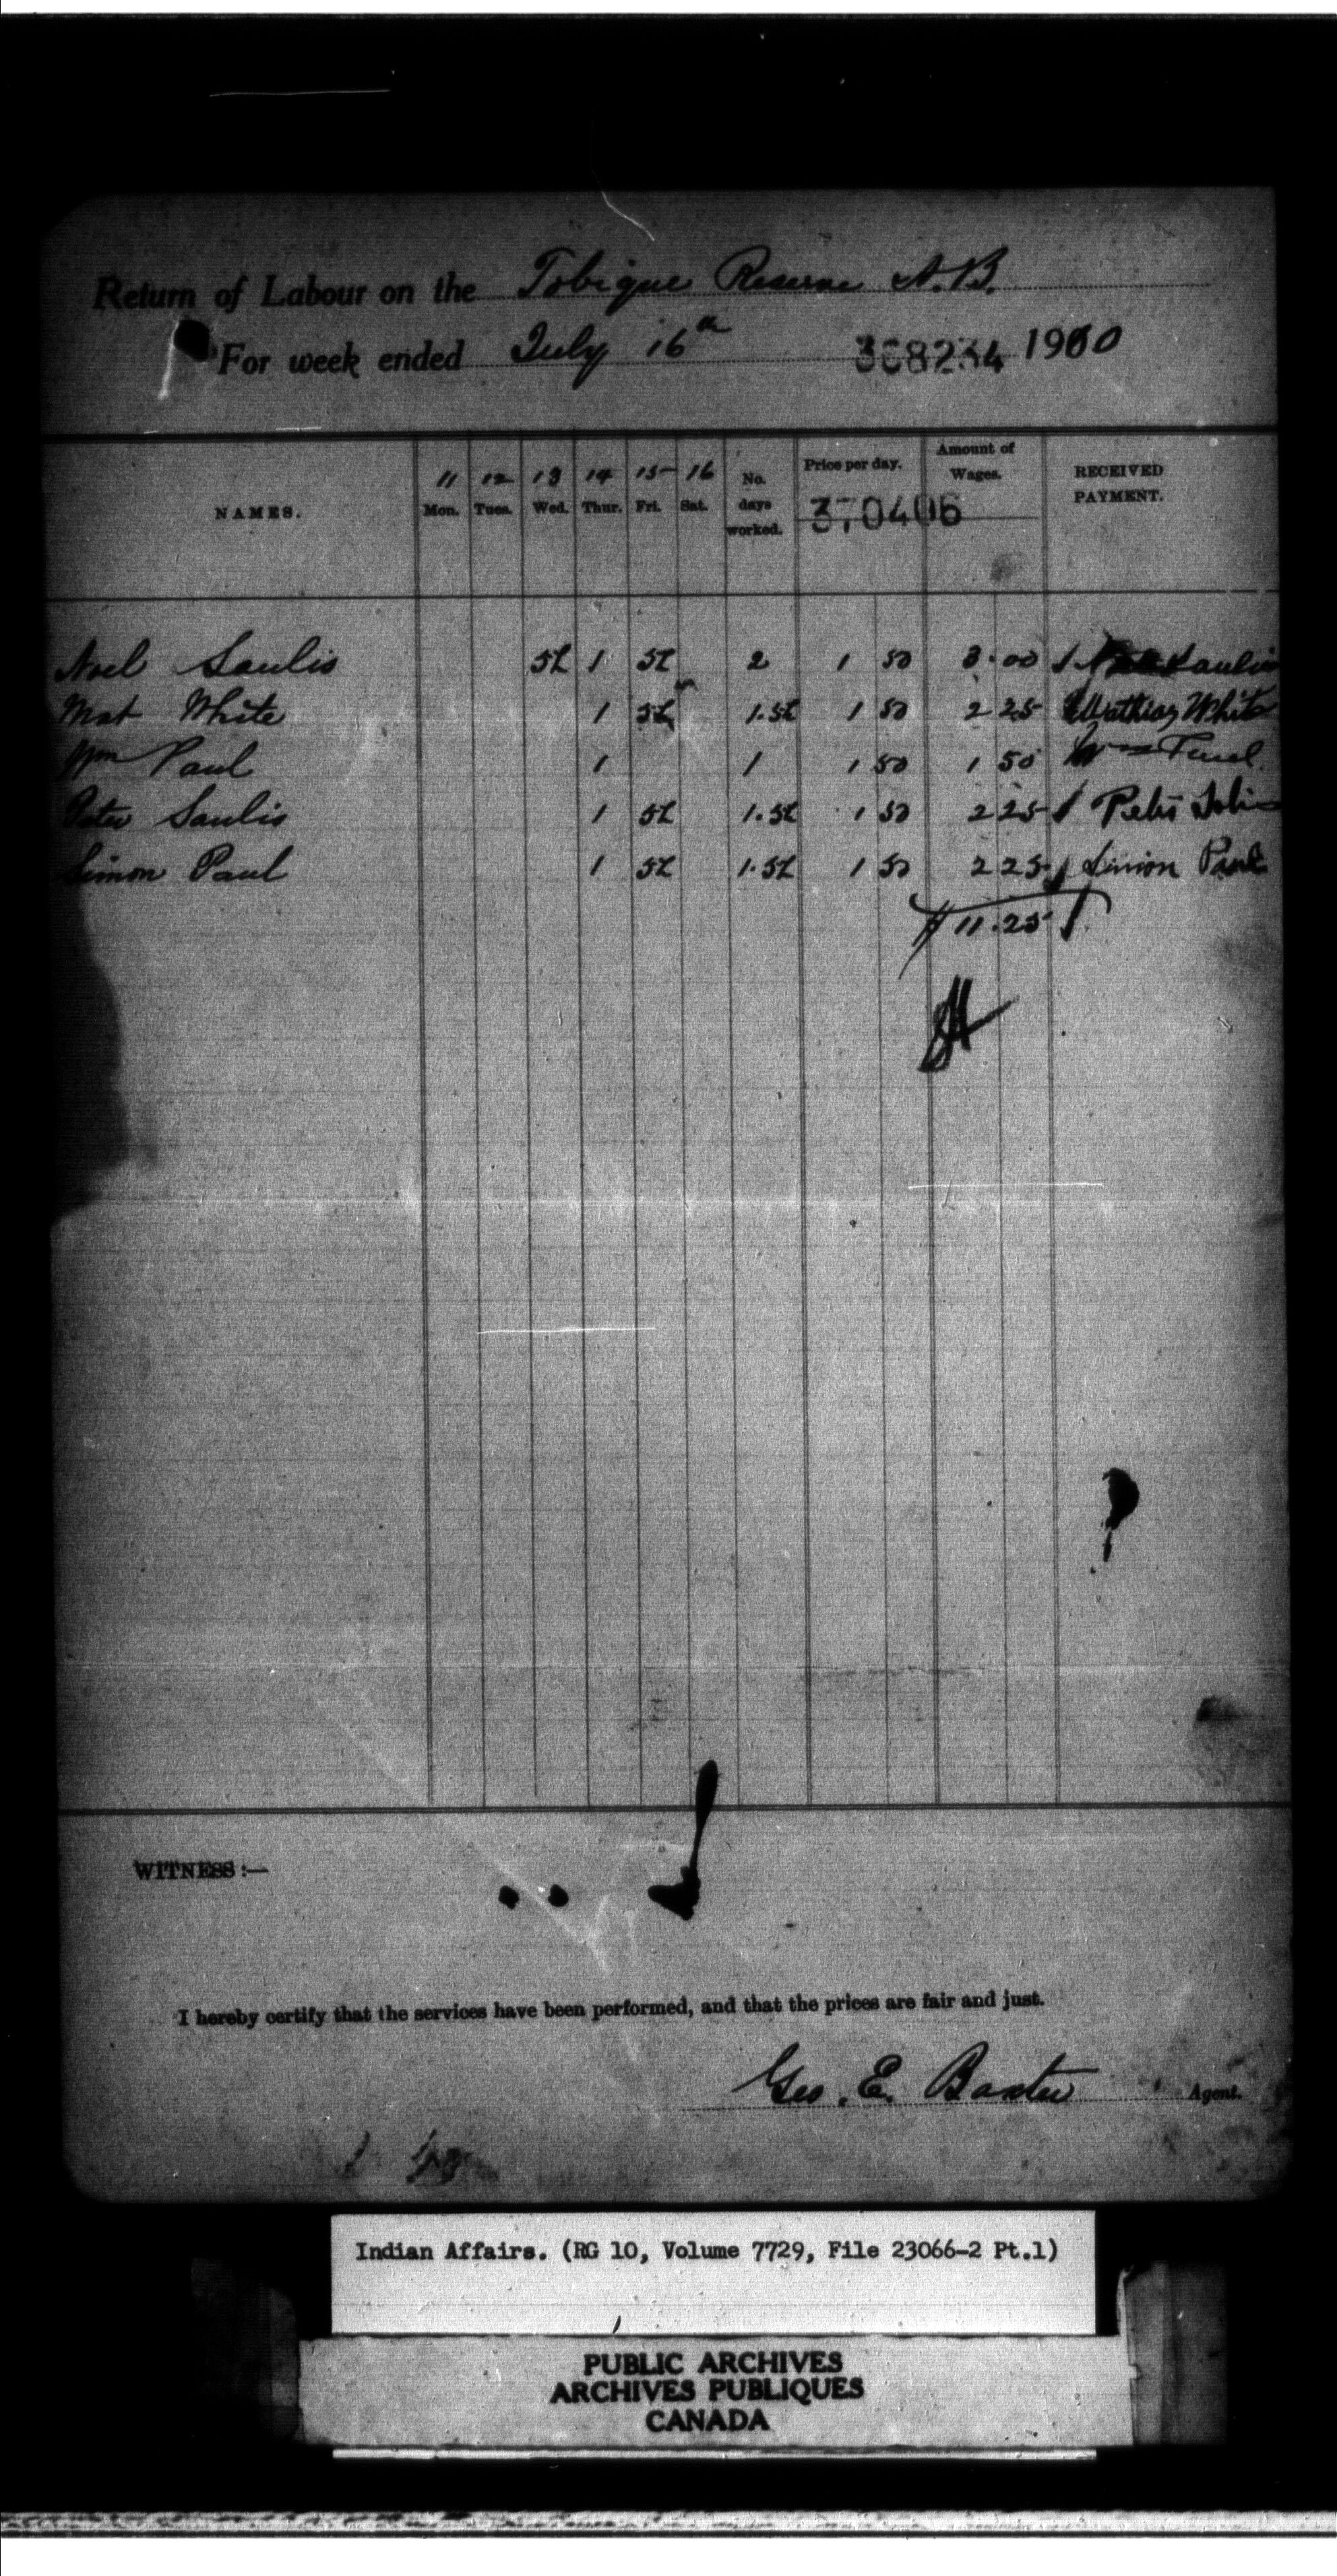 Return of Labour on the Tobique Reserve N.B.
For week ended July 16th 368234 1910
NAMES. 11 Mon. 12 Tues. 13 Wed. 14 Thur. 15 Fri. 16 Sat. No. days worked. Price per day. Amount of Wages. RECEIVED PAYMENT.
370406
Noel Saulis 5L 1 5L 2 1 50 3.00 Saulis
Mat White 1 5L 1.5L 1 50 2 25 Mathias White
Wm Paul 1 1 1 50 1 50 Wm Paul
Peter Saulis 1 5L 1.5L 1 50 2 25 Peter
Simon Paul 1 5L 1.5L 1 50 2 25 Simon Paul
$11.25
WITNESS:—
I hereby certify that the services have been performed, and that the prices are fair and just.
Geo. E. Baxter Agent.
Indian Affairs. (RG 10, Volume 7729, File 23066-2 Pt.1)
PUBLIC ARCHIVES
ARCHIVES PUBLIQUES
CANADA